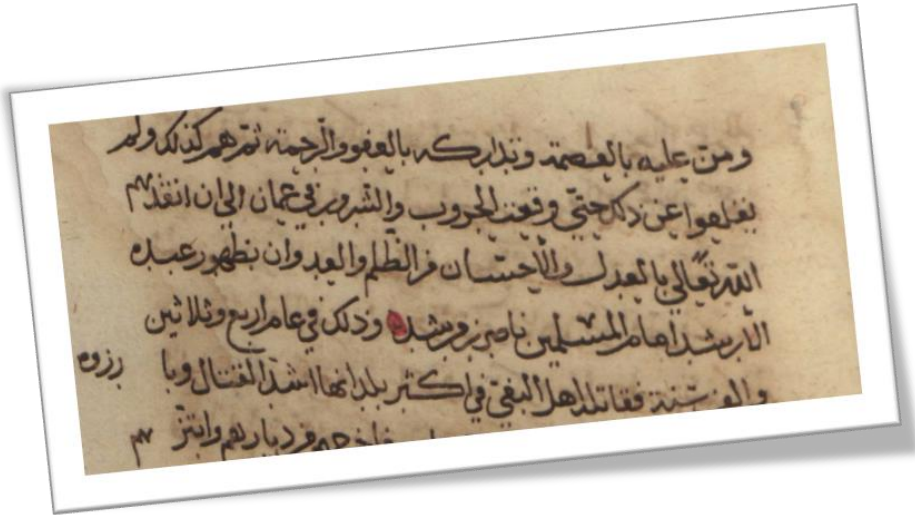 ومن عليه بالعصمة وتداركه بالعفو والرحمة ثم هم كذلك ولم
يقلعوا عن ذلك حتى وقعت الحروب والشرور في عمان الى ان انقذهم
الله تعالى بالعدل والاحسان من الظلم والعدوان بظهور عبده
الارشد امام المسلمين ناصر بن مرشد وذلك في عام اربع وثلاثين
والف سنة فقاتل اهل البغي في اكثر بلدانها اشد القتال وبا رزوه
من ديارهم وابتز هم